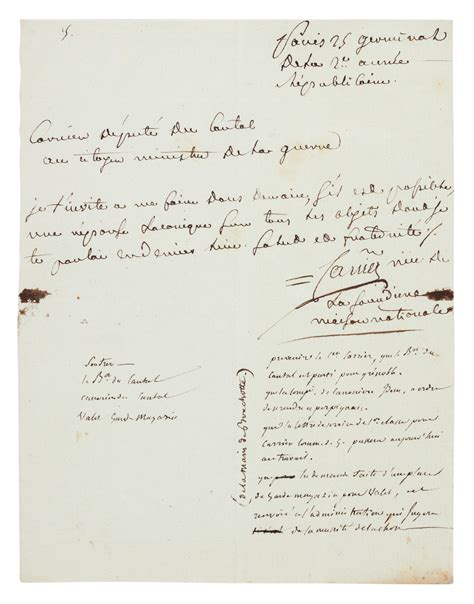 5.
Paris 25 germinal
De la 2e année
Républicaine
Carrier député du Cantal
au citoyen ministre de la guerre
je t'invite a me faire dans demain, s'il est possible,
une réponse laconique sur tous les objets dont je
te parlai avant hier. Salut et fraternité
Carrier rue de
maison nationale
le B.on du Cantal
canoniers du Cantal
Valet Garde Magazin
(de la main de Bouchotte)
prévenir le C.en Carrier, que le B.on du
Cantal est parti pour grenoble
que la comp.e de canoniers, a ordre
de se rendre a perpignan.
que la lettre de service de 1.re classe pour
Carrier comm. d. G. passera aujourd'hui
au travail.
la demande faite d'une place
de Garde magazin pour Valet, est
renvoyé a l'administration qui jugera
de la nécessité de la chose